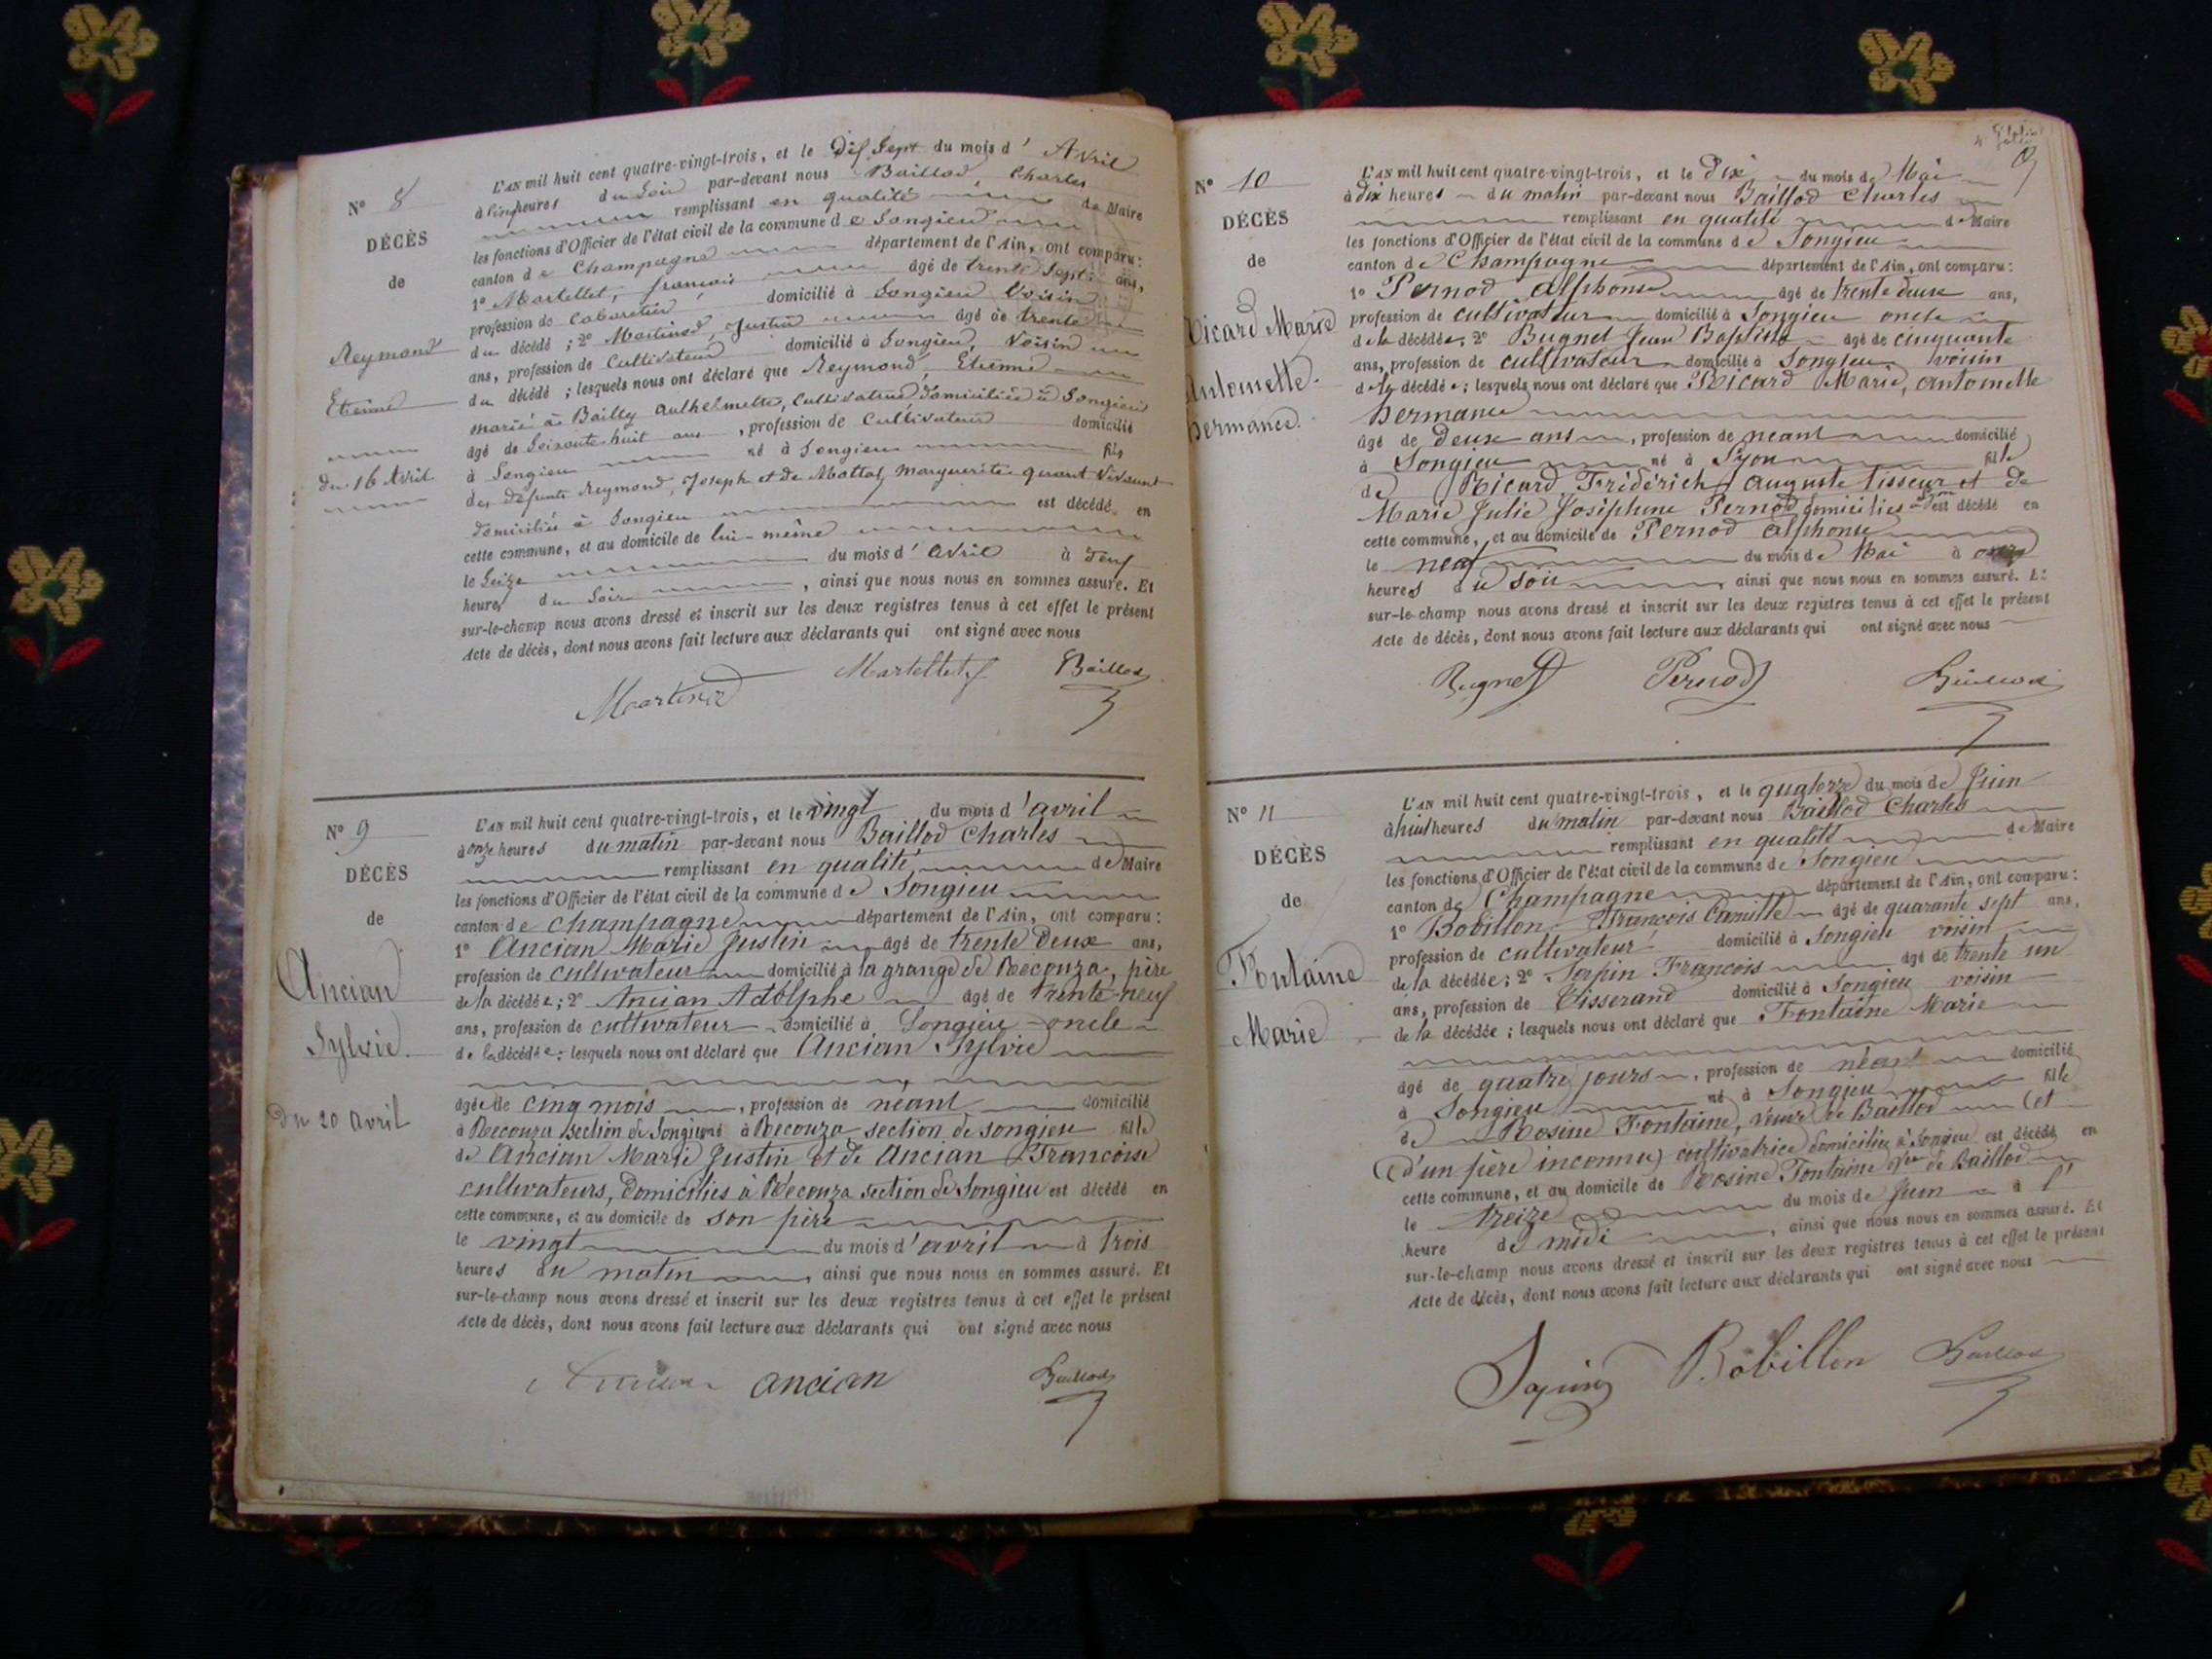 N° 8
DÉCÈS
de
Reymond
Etienne
du 16 Avril
L'AN mil huit cent quatre-vingt-trois, et le dix Sept du mois d' Avril
à cinq heures du Soir par-devant nous Baillod, Charles
remplissant en qualité de Maire
les fonctions d'Officier de l'état civil de la commune de Songieu
canton de Champagne département de l'Ain, ont comparu:
1° Martellet, françois âgé de trente Sept ans,
profession de Cabaretier domicilié à Songieu Voisin
du décédé; 2° Martinod, Justin âgé de trente
ans, profession de Cultivateur domicilié à Songieu, Voisin
du décédé; lesquels nous ont déclaré que Reymond, Etienne
marié à Bailly Anthelmette, Cultivatrice domiciliée à Songieu
âgé de Soixante huit ans, profession de Cultivateur domicilié
à Songieu né à Songieu fils
des défunts Reymond, Joseph et de Mottaz, Marguerite quant Vivaient
domiciliés à Songieu est décédé en
cette commune, et au domicile de lui-même
le Seize du mois d'Avril à
heures du Soir, ainsi que nous nous en sommes assuré. Et
sur-le-champ nous avons dressé et inscrit sur les deux registres tenus à cet effet le présent
Acte de décès, dont nous avons fait lecture aux déclarants qui ont signé avec nous
Martinod Martellet f Baillod
N° 9
DÉCÈS
de
Ancian
Sylvie.
Du 20 avril
L'AN mil huit cent quatre-vingt-trois, et le vingt du mois d'avril
à onze heures du matin par-devant nous Baillod Charles
remplissant en qualité de Maire
les fonctions d'Officier de l'état civil de la commune de Songieu
canton de Champagne département de l'Ain, ont comparu:
1° Ancian Marie Justin âgé de trente deux ans,
profession de cultivateur domicilié à la grange de Recouza, père
de la décédée; 2° Ancian Adolphe âgé de trente-neuf
ans, profession de cultivateur domicilié à Songieu oncle
de la décédée; lesquels nous ont déclaré que Ancian Sylvie
âgée de cinq mois, profession de néant domicilié
à Recouza section de Songieu né à Recouza section de songieu fille
de Ancian Marie Justin et de Ancian Francoise
cultivateurs, domiciliés à Recouza section de Songieu est décédé en
cette commune, et au domicile de son père
le vingt du mois d'avril à trois
heures du matin, ainsi que nous nous en sommes assuré. Et
sur-le-champ nous avons dressé et inscrit sur les deux registres tenus à cet effet le présent
Acte de décès, dont nous avons fait lecture aux déclarants qui ont signé avec nous
Ancian ancian Baillod
N° 10
DÉCÈS
de
Ricard Marie
Antoinette
hermance.
9
L'AN mil huit cent quatre-vingt-trois, et le Dix du mois de Mai
à dix heures du matin par-devant nous Baillod Charles
remplissant en qualité de Maire
les fonctions d'Officier de l'état civil de la commune de Songieu
canton de Champagne département de l'Ain, ont comparu:
1° Pernod Alphonse âgé de trente deux ans,
profession de cultivateur domicilié à Songieu oncle
de la décédée; 2° Bugnet Jean Baptiste âgé de cinquante
ans, profession de cultivateur domicilié à Songieu voisin
de la décédée; lesquels nous ont déclaré que Ricard Marie, antoinette
hermance
âgé de deux ans, profession de neant domicilié
à Songieu né à Lyon fille
de Ricard Fréderick Auguste tisseur et de
Marie Julie Joséphine Pernod domiciliés à Lyon est décédé en
cette commune, et au domicile de Pernod alphonse
le neuf du mois de Mai à onze
heures du soir ainsi que nous nous en sommes assuré. Et
sur-le-champ nous avons dressé et inscrit sur les deux registres tenus à cet effet le présent
Acte de décès, dont nous avons fait lecture aux déclarants qui ont signé avec nous
Bugnet Pernod Baillod
N° 11
DÉCÈS
de
Fontaine
Marie
L'AN mil huit cent quatre-vingt-trois, et le quatorze du mois de Juin
à huit heures du matin par-devant nous Baillod Charles
remplissant en qualité de Maire
les fonctions d'Officier de l'état civil de la commune de Songieu
canton de Champagne département de l'Ain, ont comparu:
1° Bobillon François Camille âgé de quarante sept ans,
profession de cultivateur domicilié à Songieu voisin
de la décédée; 2° Serpin François âgé de trente un
ans, profession de Tisserand domicilié à Songieu voisin
de la décédée; lesquels nous ont déclaré que Fontaine Marie
âgé de quatre jours, profession de néant domicilié
à Songieu né à Songieu fille
de Rosine Fontaine, veuve de Baillod (et
d'un père inconnu) cultivatrice domiciliée à Songieu est décédé en
cette commune, et au domicile de Rosine Fontaine Vve de Baillod
le treize du mois de Juin à l'
heure de midi, ainsi que nous nous en sommes assuré. Et
sur-le-champ nous avons dressé et inscrit sur les deux registres tenus à cet effet le présent
Acte de décès, dont nous avons fait lecture aux déclarants qui ont signé avec nous
Bobillon Baillod